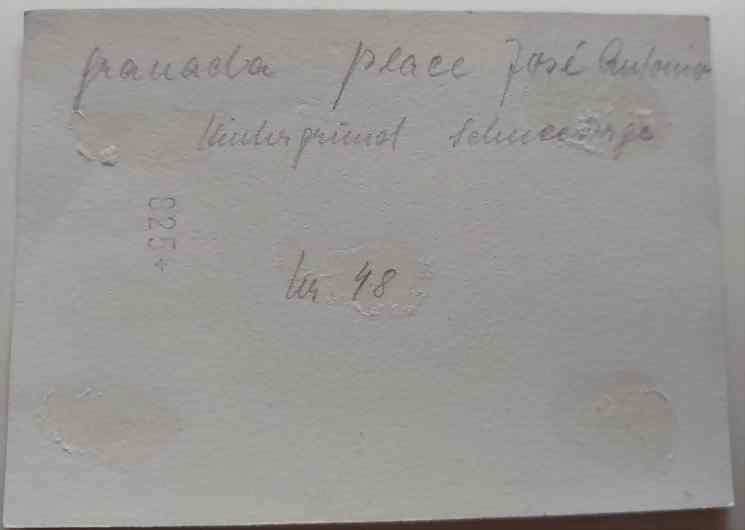 Granada place José Antonio
Hintergrund Schneeberge
825+
Nr. 48